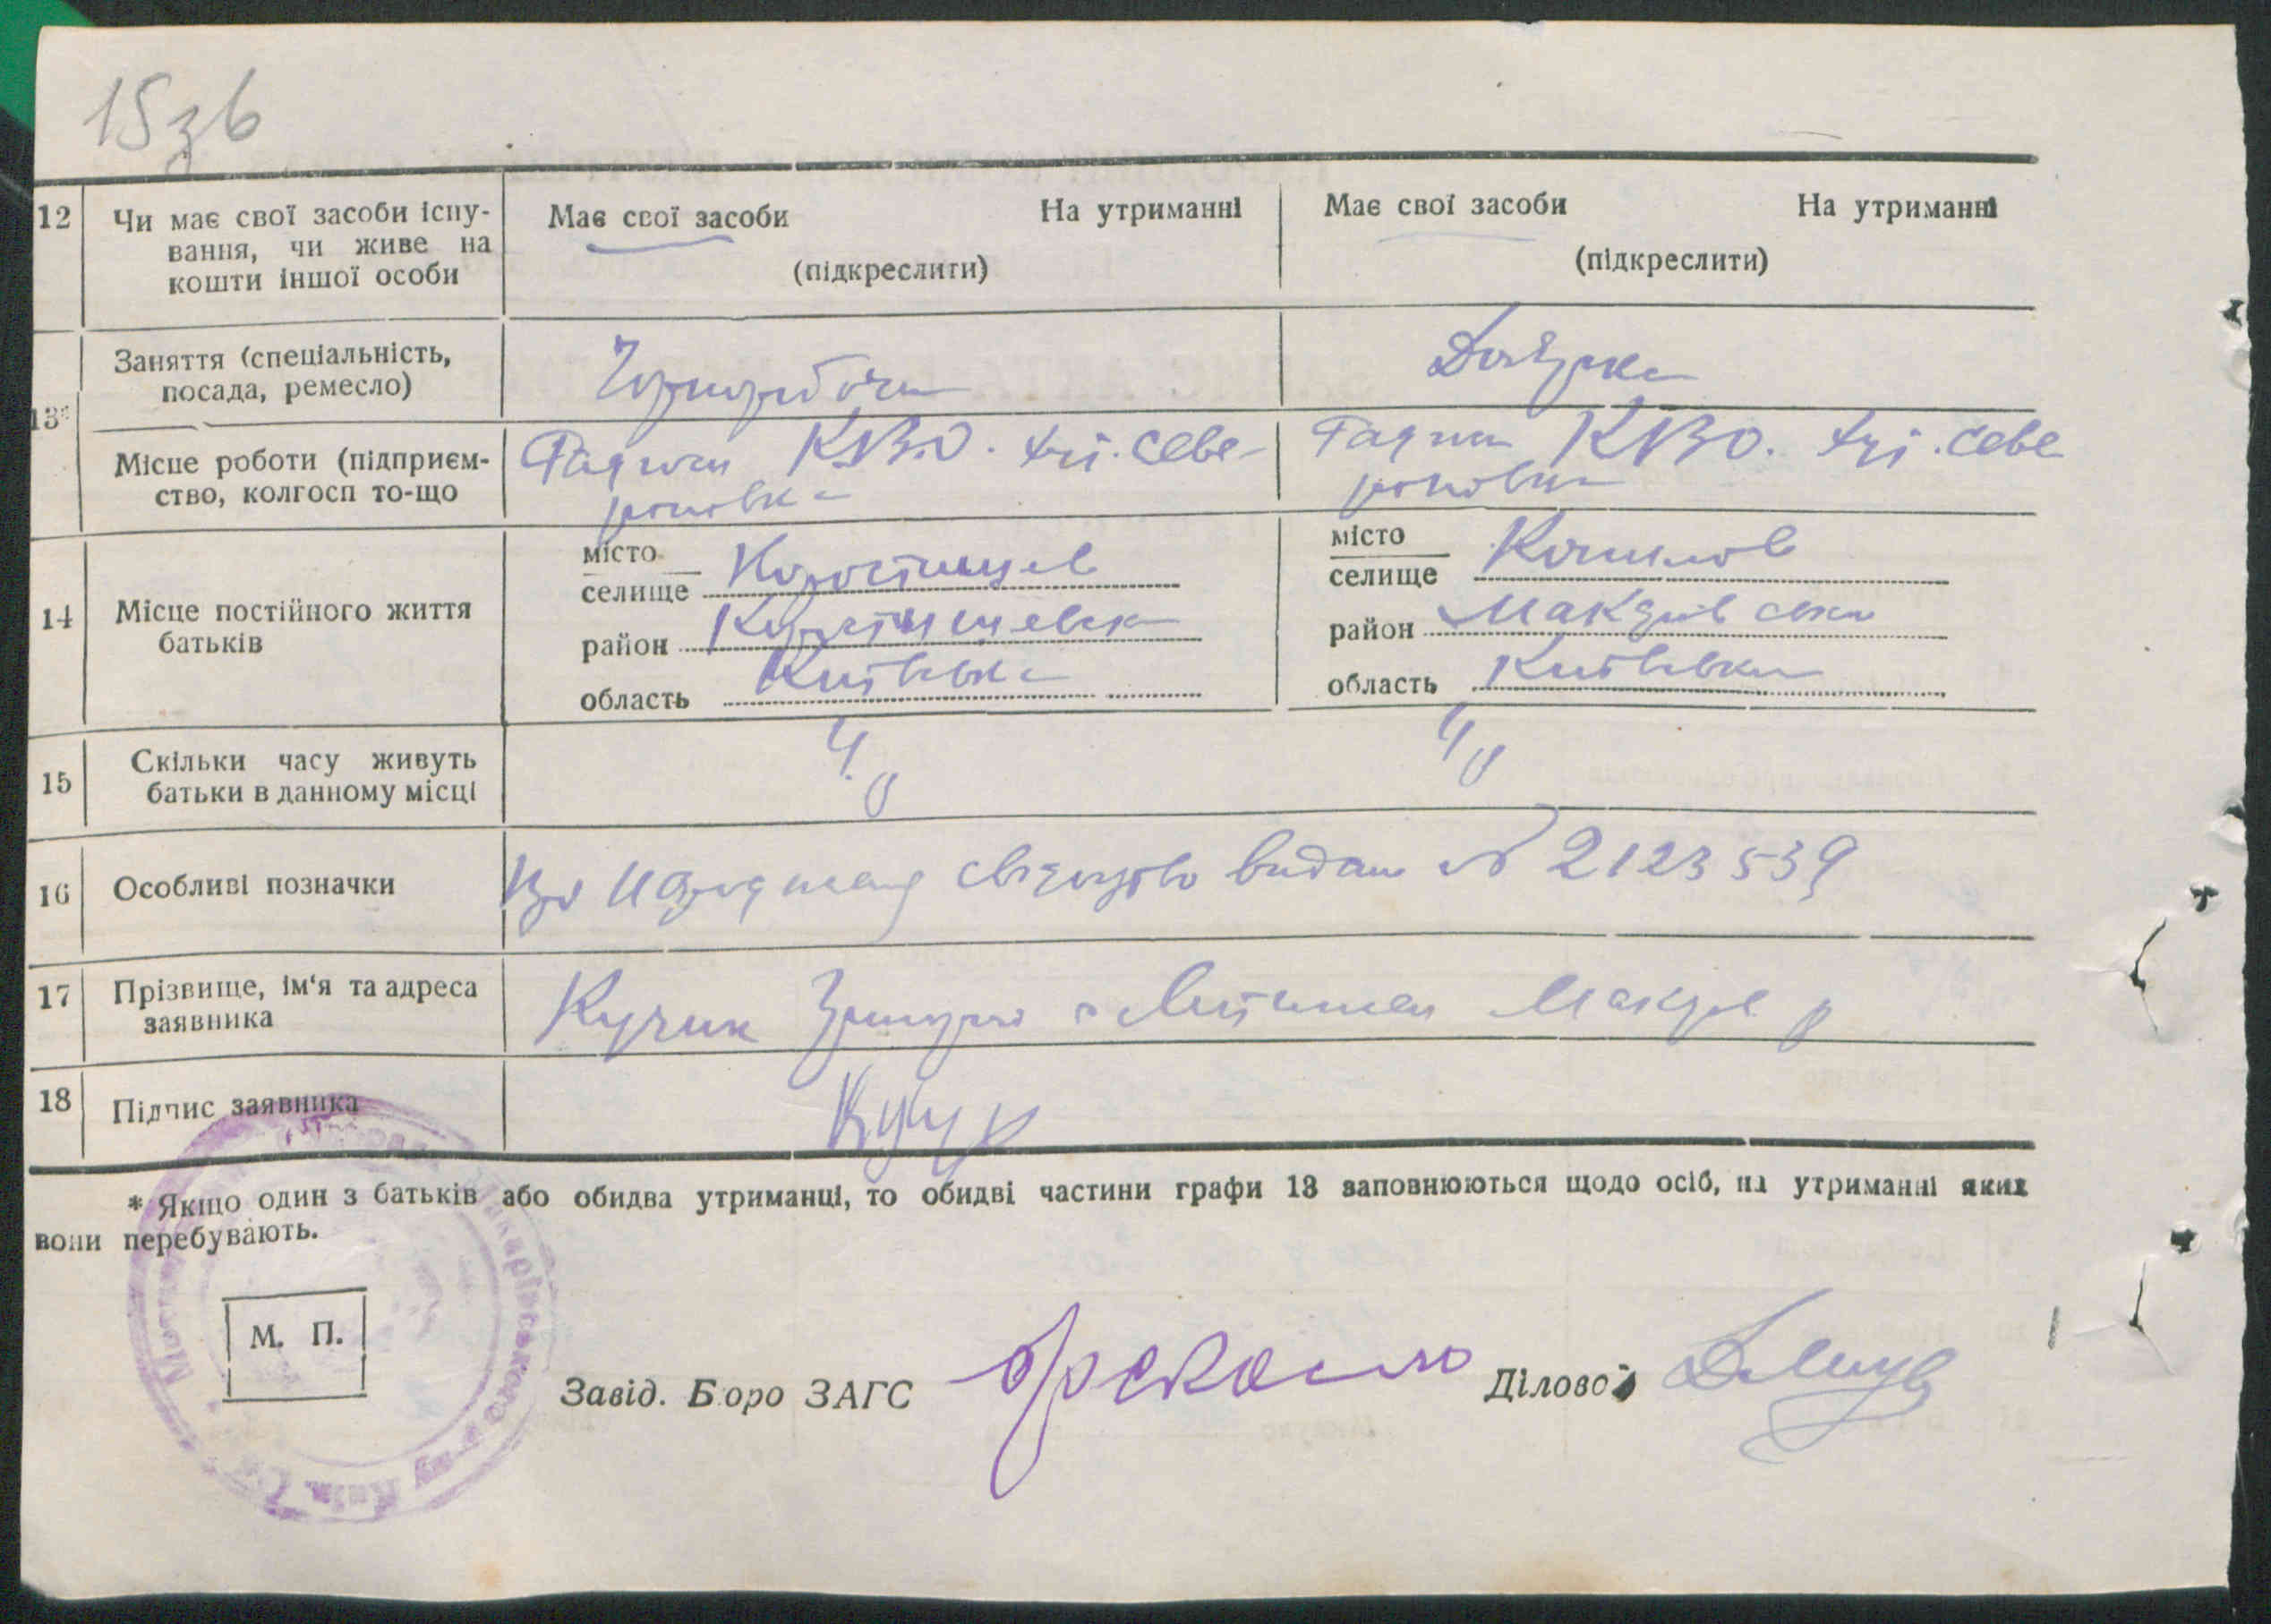 15зв
12 Чи має свої засоби існу-
вання, чи живе на
кошти іншої особи
Має свої засоби На утриманні
(підкреслити)
Має свої засоби На утриманні
(підкреслити)
13*
Заняття (спеціальність,
посада, ремесло)
Чорноробоча
Доярка
Місце роботи (підприєм-
ство, колгосп то-що
Радгосп КВО. Севе-
риновка
Радгосп КВО. Севе
риновка
14 Місце постійного життя
батьків
місто
селище Коростишев
район Коростишевск
область Київська
місто
селище
район Макарівськ
область Київська
15 Скільки часу живуть
батьки в данному місці
16 Особливі позначки
Про народження свідоцтво видано № 2123539
17 Прізвище, ім'я та адреса
заявника
Кучик Макарів р
18 Підпис заявника
* Якщо один з батьків або обидва утриманці, то обидві частини графи 13 заповнюються щодо осіб, на утриманні яких
вони перебувають.
М. П.
Завід. Бюро ЗАГС
Діловод